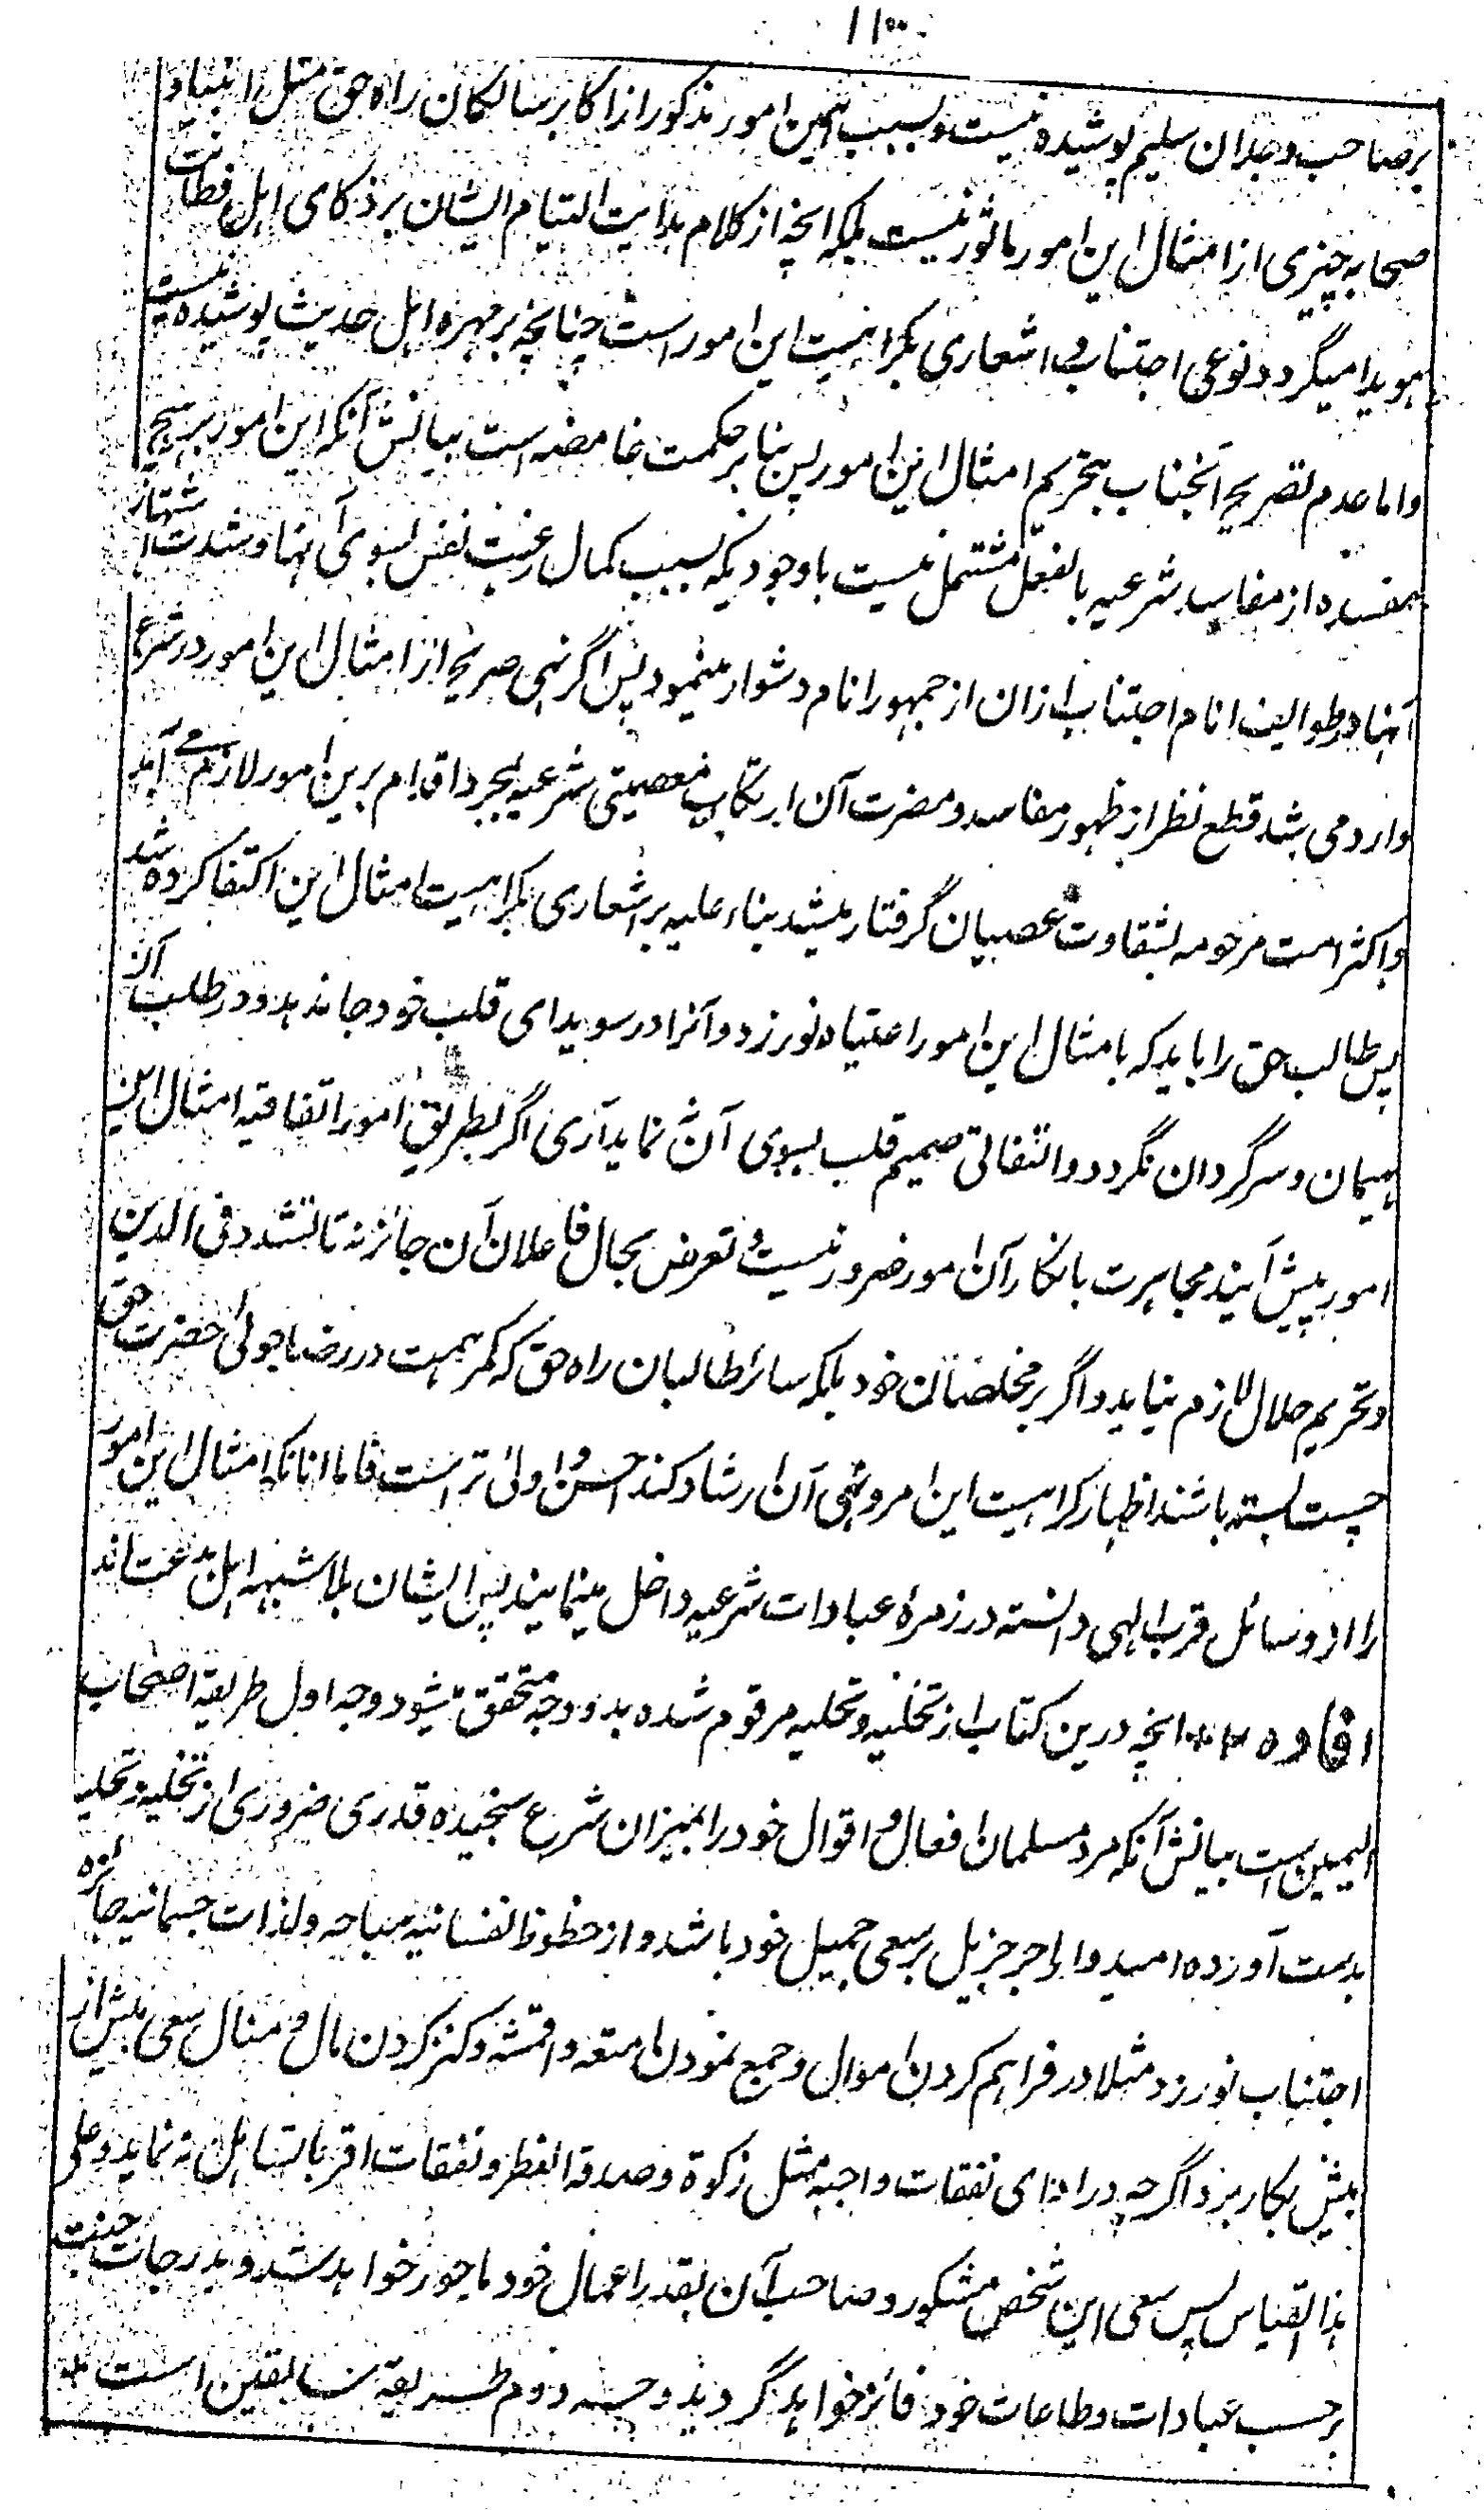 ۱۱۰
بر صاحب وجدان سلیم پوشیده نیست و بسبب همین امور مذکور از اکابر سالکان راه حق مثل انبیا و
صحابه چیزی از امثال این امور ماثور نیست بلکه انچه از کلام هدایت التیام ایشان بر ذکای اهل فطانت
هویدا میگردد نوعی اجتناب و اشعاری بکراهیت این امور است چنانچه بر مهره اهل حدیث پوشیده نیست
و اما عدم تصریح آنجناب بتحریم امثال این امور پس بنا بر حکمت غامضه است بیانش آنکه این امور بر هیچ
مفسده از مفاسد شرعیه بالفعل مشتمل نیست باوجودیکه بسبب کمال رغبت نفس بسوی آنها و شدت اشتهار
آنها در طوایف انام اجتناب ازان از جمهور انام دشوار مینمود پس اگر نهی صریح از امثال این امور در شرع
وارد می شد قطع نظر از ظهور مفاسد و مضرت آن ارتکاب معصیتی شرعیه بمجرد اقدام برین امور لازم می آمد
و اکثر امت مرحومه بشقاوت عصیان گرفتار میشد بناء علیه بر اشعاری بکراهیت امثال این اکتفا کرده شد
پس طالب حق را باید که با مثال این امور اعتیاد نورزد و آنرا در سویدای قلب خود جا ندهد و در طلب آن
هیمان و سرگردان نگردد و التفاتی صمیم قلب بسوی آن ننماید آری اگر بطریق امور اتفاقیه امثال این
امور پیش آیند مجاهرت بانکار آن امور ضرور نیست و تعرض بحال فاعلان آن جائز نه تا تشدد فی الدین
و تحریم حلال لازم نیاید و اگر بر مخلصان خود بلکه سائر طالبان راه حق که کمر همت در رضاجوئی حضرت حق
چست بسته باشند اظهار کراهیت این امر و نهی آن ارشاد کند احسن و اولی تر است فاما انانکه امثال این امور
را از وسائل قرب الهی دانسته در زمره عبادات شرعیه داخل مینمایند پس ایشان بلا شبهه اهل بدعت اند
افاده ۲۴ انچه درین کتاب از تخلیه و تحلیه مرقوم شده بدو وجه متحقق میشود وجه اول طریقه اصحاب
الیمین است بیانش آنکه مرد مسلمان افعال و اقوال خود را بمیزان شرع سنجیده قدری ضروری از تخلیه و تحلیه
بدست آورده امیدوار اجر جزیل بر سعی جمیل خود باشد و از حظوظ نفسانیه مباحه و لذات جسمانیه جائزه
اجتناب نورزد مثلا در فراهم کردن اموال و جمع نمودن امتعه و اقمشه و کنز کردن مال و منال سعی بیش از
بیش بکار برد اگرچه در ادای نفقات واجبه مثل زکوة و صدقة الفطر و نفقات اقربا تساهل نه نماید و علی
هذا القیاس پس سعی این شخص مشکور و صاحب آن بقدر اعمال خود ماجور خواهد شد و بدرجات جنت
بر حسب عبادات و طاعات خود فائز خواهد گردید و وجه دوم طریقه سابقین است